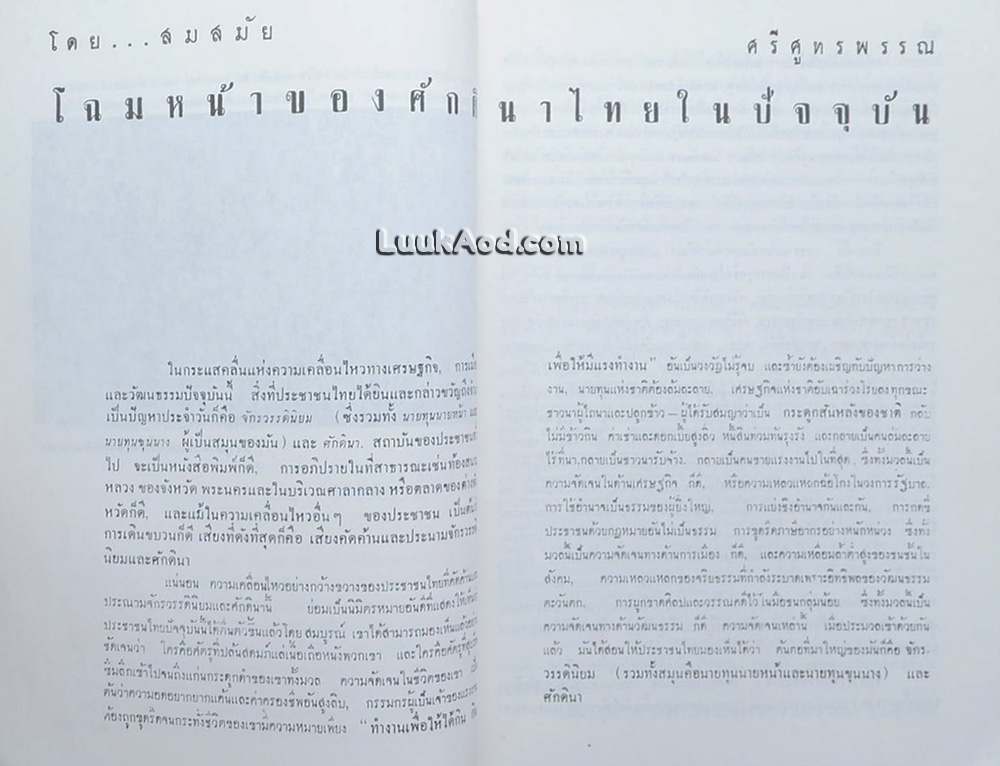 โดย...สมสมัย
ศรีศูทรพรรณ
โฉมหน้าของศักดินาไทยในปัจจุบัน
LuukAod.com
ในกระแสคลื่นแห่งความเคลื่อนไหวทางเศรษฐกิจ, การเมือ
และวัฒนธรรมปัจจุบันนี้ สิ่งที่ประชาชนไทยได้ยินและกล่าวขวัญถึงอ
เป็นปัญหาประจำวันก็คือ จักรวรรดินิยม (ซึ่งรวมทั้ง นายทุนนายหน้า แ
นายทุนขุนนาง ผู้เป็นสมุนของมัน) และ ศักดินา. สถาบันของประชาชนทั่
ไป จะเป็นหนังสือพิมพ์ก็ดี, การอภิปรายในที่สาธารณะเช่นท้องสนา
หลวง ของจังหวัด พระนครและในบริเวณศาลากลาง หรือตลาดของต่างจั
หวัดก็ดี, และแม้ในความเคลื่อนไหวอื่นๆ ของประชาชน เป็นต้น
การเดินขบวนก็ดี เสียงที่ดังที่สุดก็คือ เสียงคัดค้านและประนามจักรวรรดิ
นิยมและศักดินา
แน่นอน ความเคลื่อนไหวอย่างกว้างขวางของประชาชนไทยที่คัดค้านแ
ประณามจักรวรรดินิยมและศักดินานั้น ย่อมเป็นนิมิตรหมายอันดีที่แสดงให้เห็น
ประชาชนไทยปัจจุบันนี้ได้ตื่นตัวขึ้นแล้วโดย สมบูรณ์ เขาได้สามารถมองเห็นแล้วอย่าง
ชัดเจนว่า ใครคือศัตรูที่ปล้นสดมภ์แล่เนื้อเถือหนังพวกเขา และใครคือศัตรูที่สูบ
ซึ่มลึกเข้าไปจนถึงแก่นกระดูกดำของเขาทั้งมวล ความจัดเจนในชีวิตของเขา เป็น
ต้นว่าความอดอยากยากแค้นและค่าครองชีพอันสูงลิบ, กรรมกรผู้เป็นเจ้าของแรงงาน
ต้องถูกขูดรีดจนกระทั่งชีวิตของเขามีความหมายเพียง "ทำงานเพื่อให้ได้กิน กิน
เพื่อให้มีแรงทำงาน" อันเป็นวงวัฏไม่รู้จบ และซ้ำยังต้องเผชิญกับปัญหาการว่าง
งาน, นายทุนแห่งชาติต้องล้มละลาย, เศรษฐกิจแห่งชาติอับเฉาร่วงโรยลงทุกขณะ
ชาวนาผู้ไถนาและปลูกข้าว—ผู้ได้รับสมญาว่าเป็น กระดูกสันหลังของชาติ กลับ
ไม่มีข้าวกิน ค่าเช่าและดอกเบี้ยสูงลิ่ว หนี้สินท่วมท้นรุงรัง และกลายเป็นคนล้มละลาย
ไร้ที่นา,กลายเป็นชาวนารับจ้าง, กลายเป็นคนขายแรงงานไปในที่สุด, ซึ่งทั้งมวลนี้เป็น
ความจัดเจนในด้านเศรษฐกิจ ก็ดี, หรือความเหลวแหลกฉ้อโกงในวงการรัฐบาล,
การใช้อำนาจเป็นธรรมของผู้ยิ่งใหญ่, การแย่งชิงอำนาจกันและกัน, การกดขี่
ประชาชนด้วยกฎหมายอันไม่เป็นธรรม การขูดรีดภาษีอากรอย่างหนักหน่วง ซึ่งทั้ง
มวลนี้เป็นความจัดเจนทางด้านการเมือง ก็ดี, และความเหลื่อมล้ำต่ำสูงของชนชั้นใน
สังคม, ความเหลวแหลกของจริยธรรมที่กำลังระบาดเพราะอิทธิพลของวัฒนธรรม
ตะวันตก, การผูกขาดศิลปและวรรณคดีไว้ในมือชนกลุ่มน้อย ซึ่งทั้งมวลนี้เป็น
ความจัดเจนทางด้านวัฒนธรรม ก็ดี ความจัดเจนเหล่านี้ เมื่อประมวลเข้าด้วยกัน
แล้ว มันได้สอนให้ประชาชนไทยมองเห็นได้ว่า ต้นตอที่มาใหญ่ของมันก็คือ จักร-
วรรดินิยม (รวมทั้งสมุนคือนายทุนนายหน้าและนายทุนขุนนาง) และ
ศักดินา